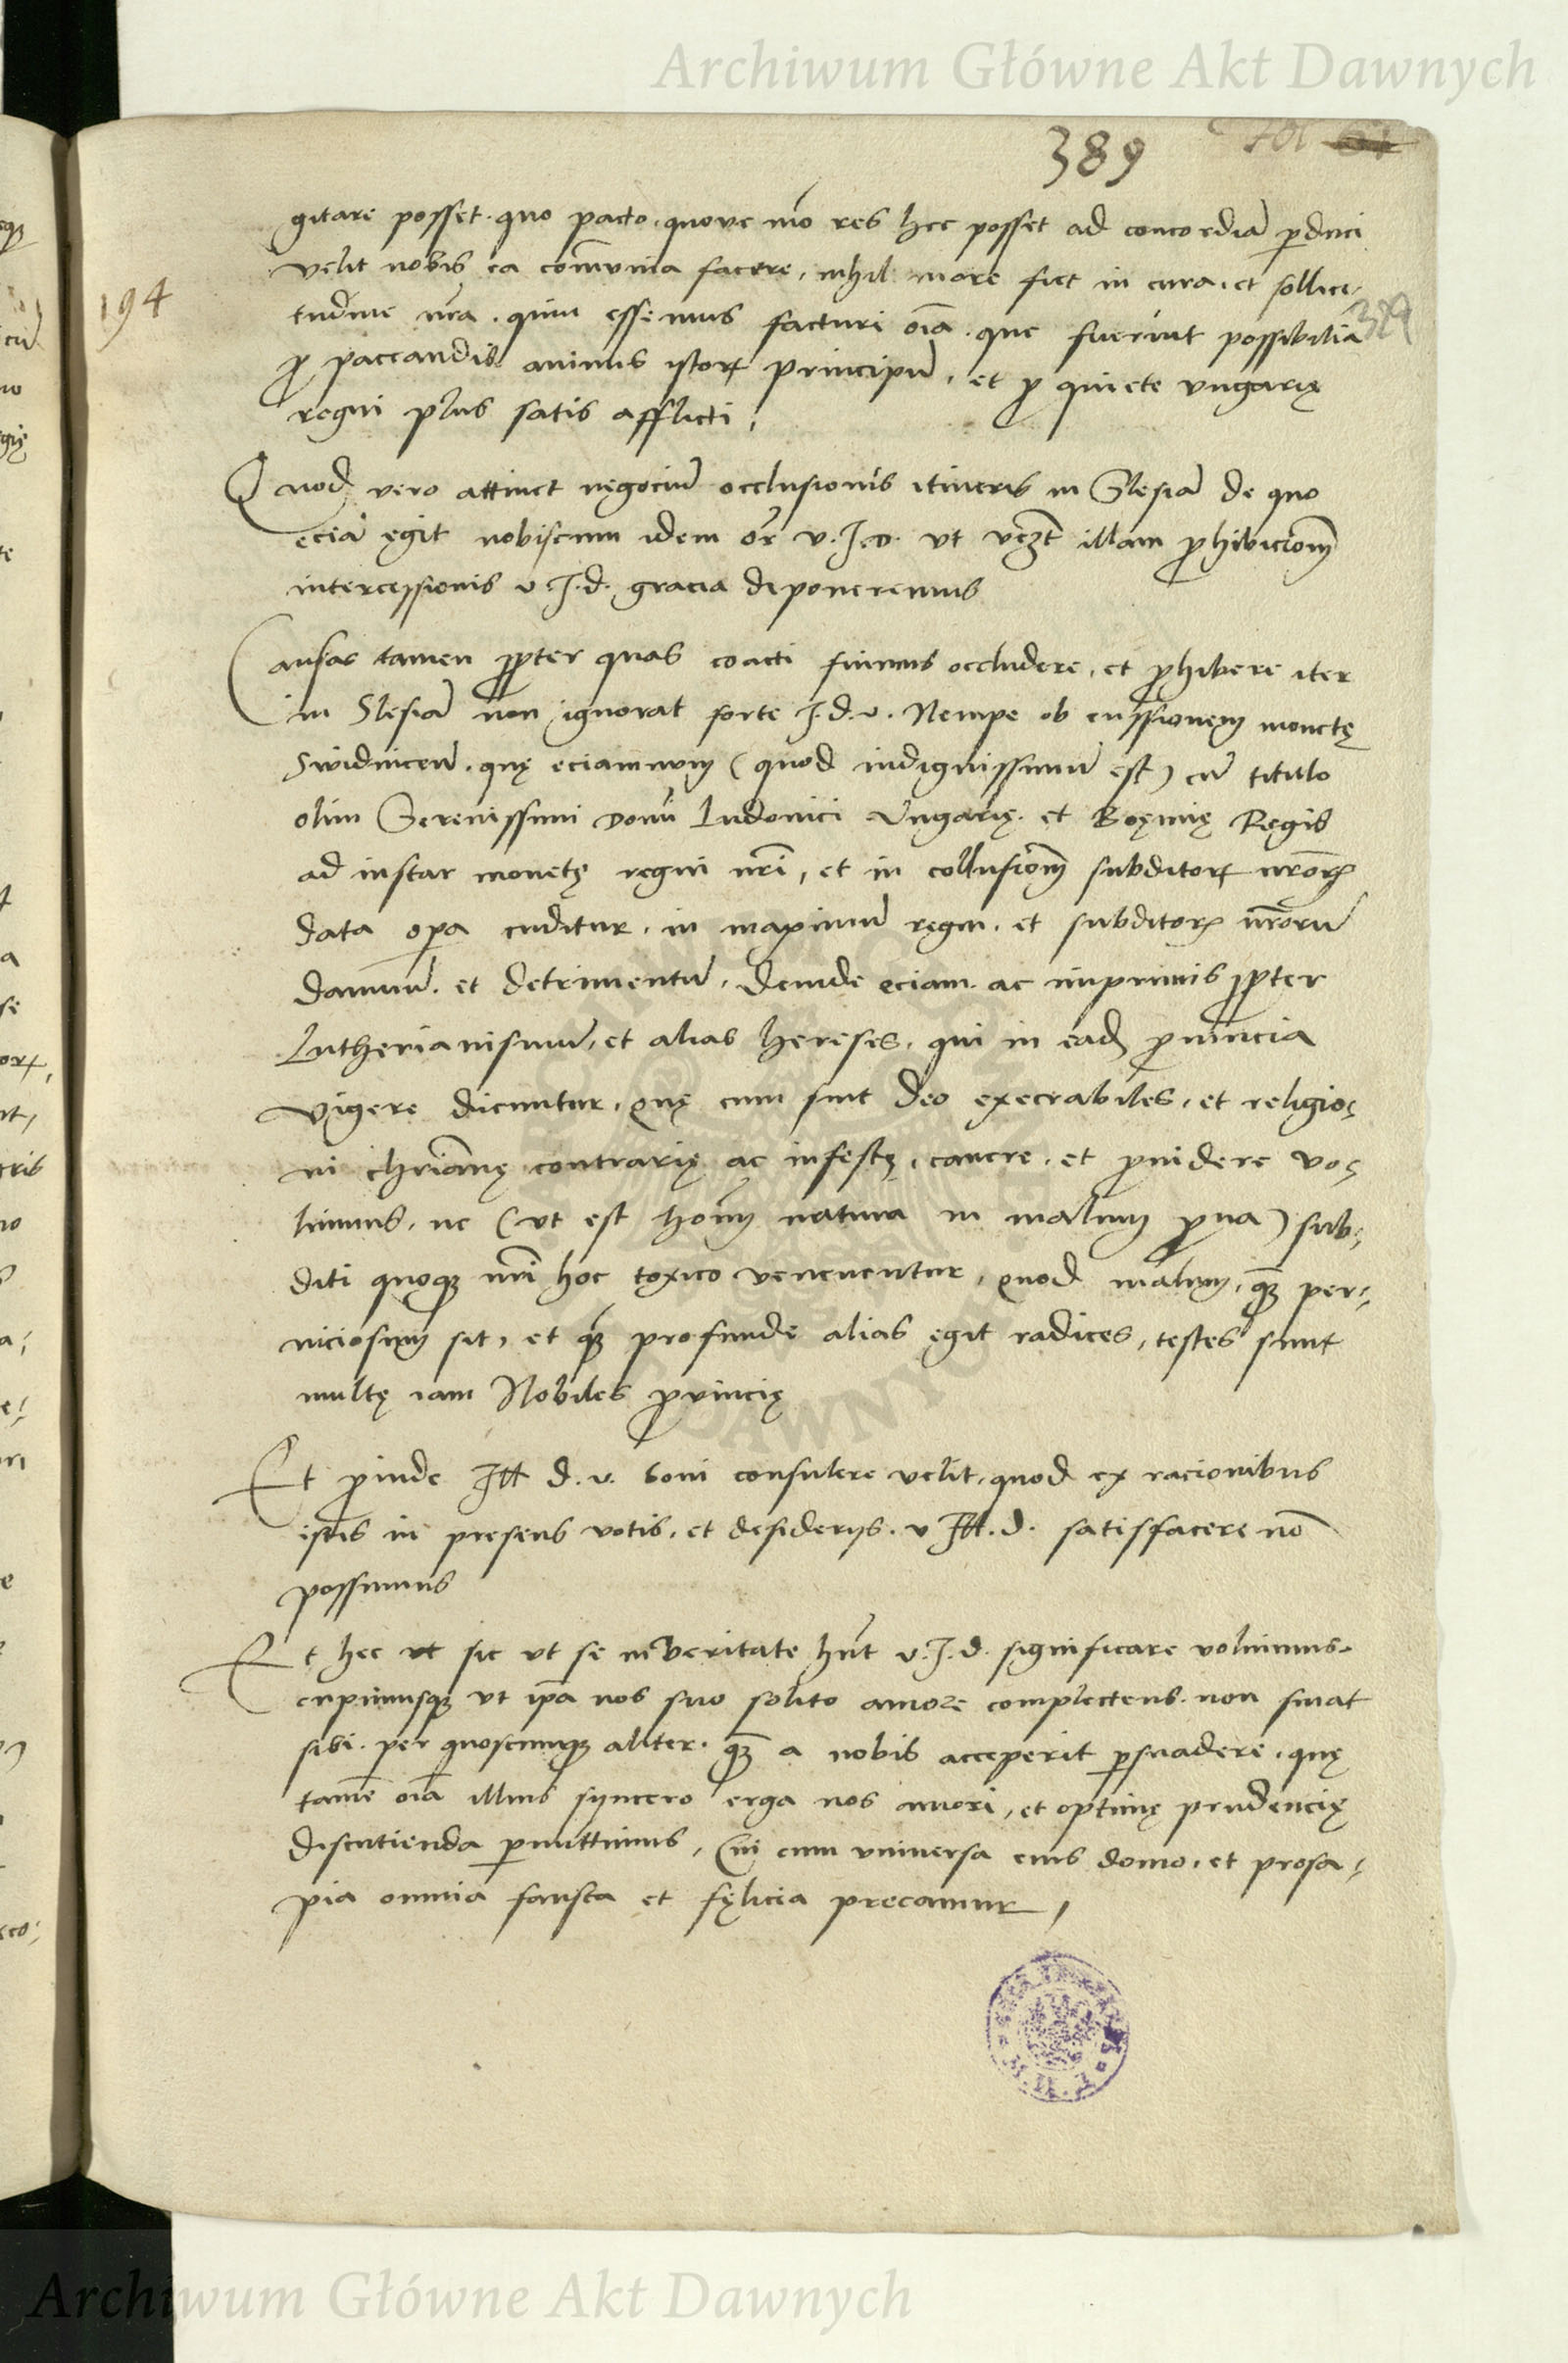 Archiwum Główne Akt Dawnych
389
fol 61
gitare posset. quo pacto. quove mō res hec posset ad concordiā ꝑduci
velit nobis ea cōmunia facere, nihil more fiet in cura. et sollici-
194
tudine nrā. quin essemus facturi oīa. que fuerint possibilia
389
ꝓ paccandis animis istoꝝ principū, et ꝓ quiete vngarię
regni plus satis afflicti,
Quod vero attinet nęgociū occlusionis itineris in Slesiā de quo
eciā ęgit nobiscum idem or̄ v. I. D. vt illam ꝓhibicionē
intercessionis v. I. d. gracia deponeremus
Causas tamen ꝓpter quas coacti fuimus occludere, et ꝓhibere iter
in Slesiā non ignorat forte I. d. v. Nempe ob cussionem monetę
Swidnicen̄. quę eciamnum (quod indignissimū est) cū titulo
olim Serenissimi domi Ludouici Vngarię. et Boęmię Regis
ad instar monetę regni nrī, et in collusionē subditoꝝ nrōꝝ
data oꝑa cuditur. in maximū regni. et subditoꝝ nrōrū
damnū. et detrimentū. Deinde eciam. ac imprimis ꝓpter
Lutherianismū, et alias hereses. qui in eadē ꝓuincia
vigere dicuntur. Quę cum sint Deo execrabiles, et religio-
ni chriānę contrarię ac infestę, cauere. et ꝓuidere vo-
luimus. ne (vt est homī natura in malum ꝓna) sub-
diti quoqꝫ nrī hoc toxico venenentur, quod malum, qꝫ per-
niciosum sit, et qꝫ profunde alias ęgit radices, testes sunt
multę iam Nobiles ꝓvincię
Et ꝓinde Ill. d. v. boni consulere velit, quod ex racionibus
istis in presens votis, et desiderijs. v Ill. d. satisfacere nō
possumus
Et hec vt sic vt se in veritate hn̄t v. I. d. significare voluimus.
cupimusqꝫ vt ipā nos suo solito amore complectens. non sinat
sibi. per quoscunqꝫ aliter. qꝫ a nobis acceperit ꝑsuadere, quę
tamē oīa illius syncero erga nos amori, et optimę prudencię
discutienda ꝑmittimus, Cui cum vniuersa eius domo, et prosa-
pia omnia fausta et fęlicia precamur,
Archiwum Główne Akt Dawnych